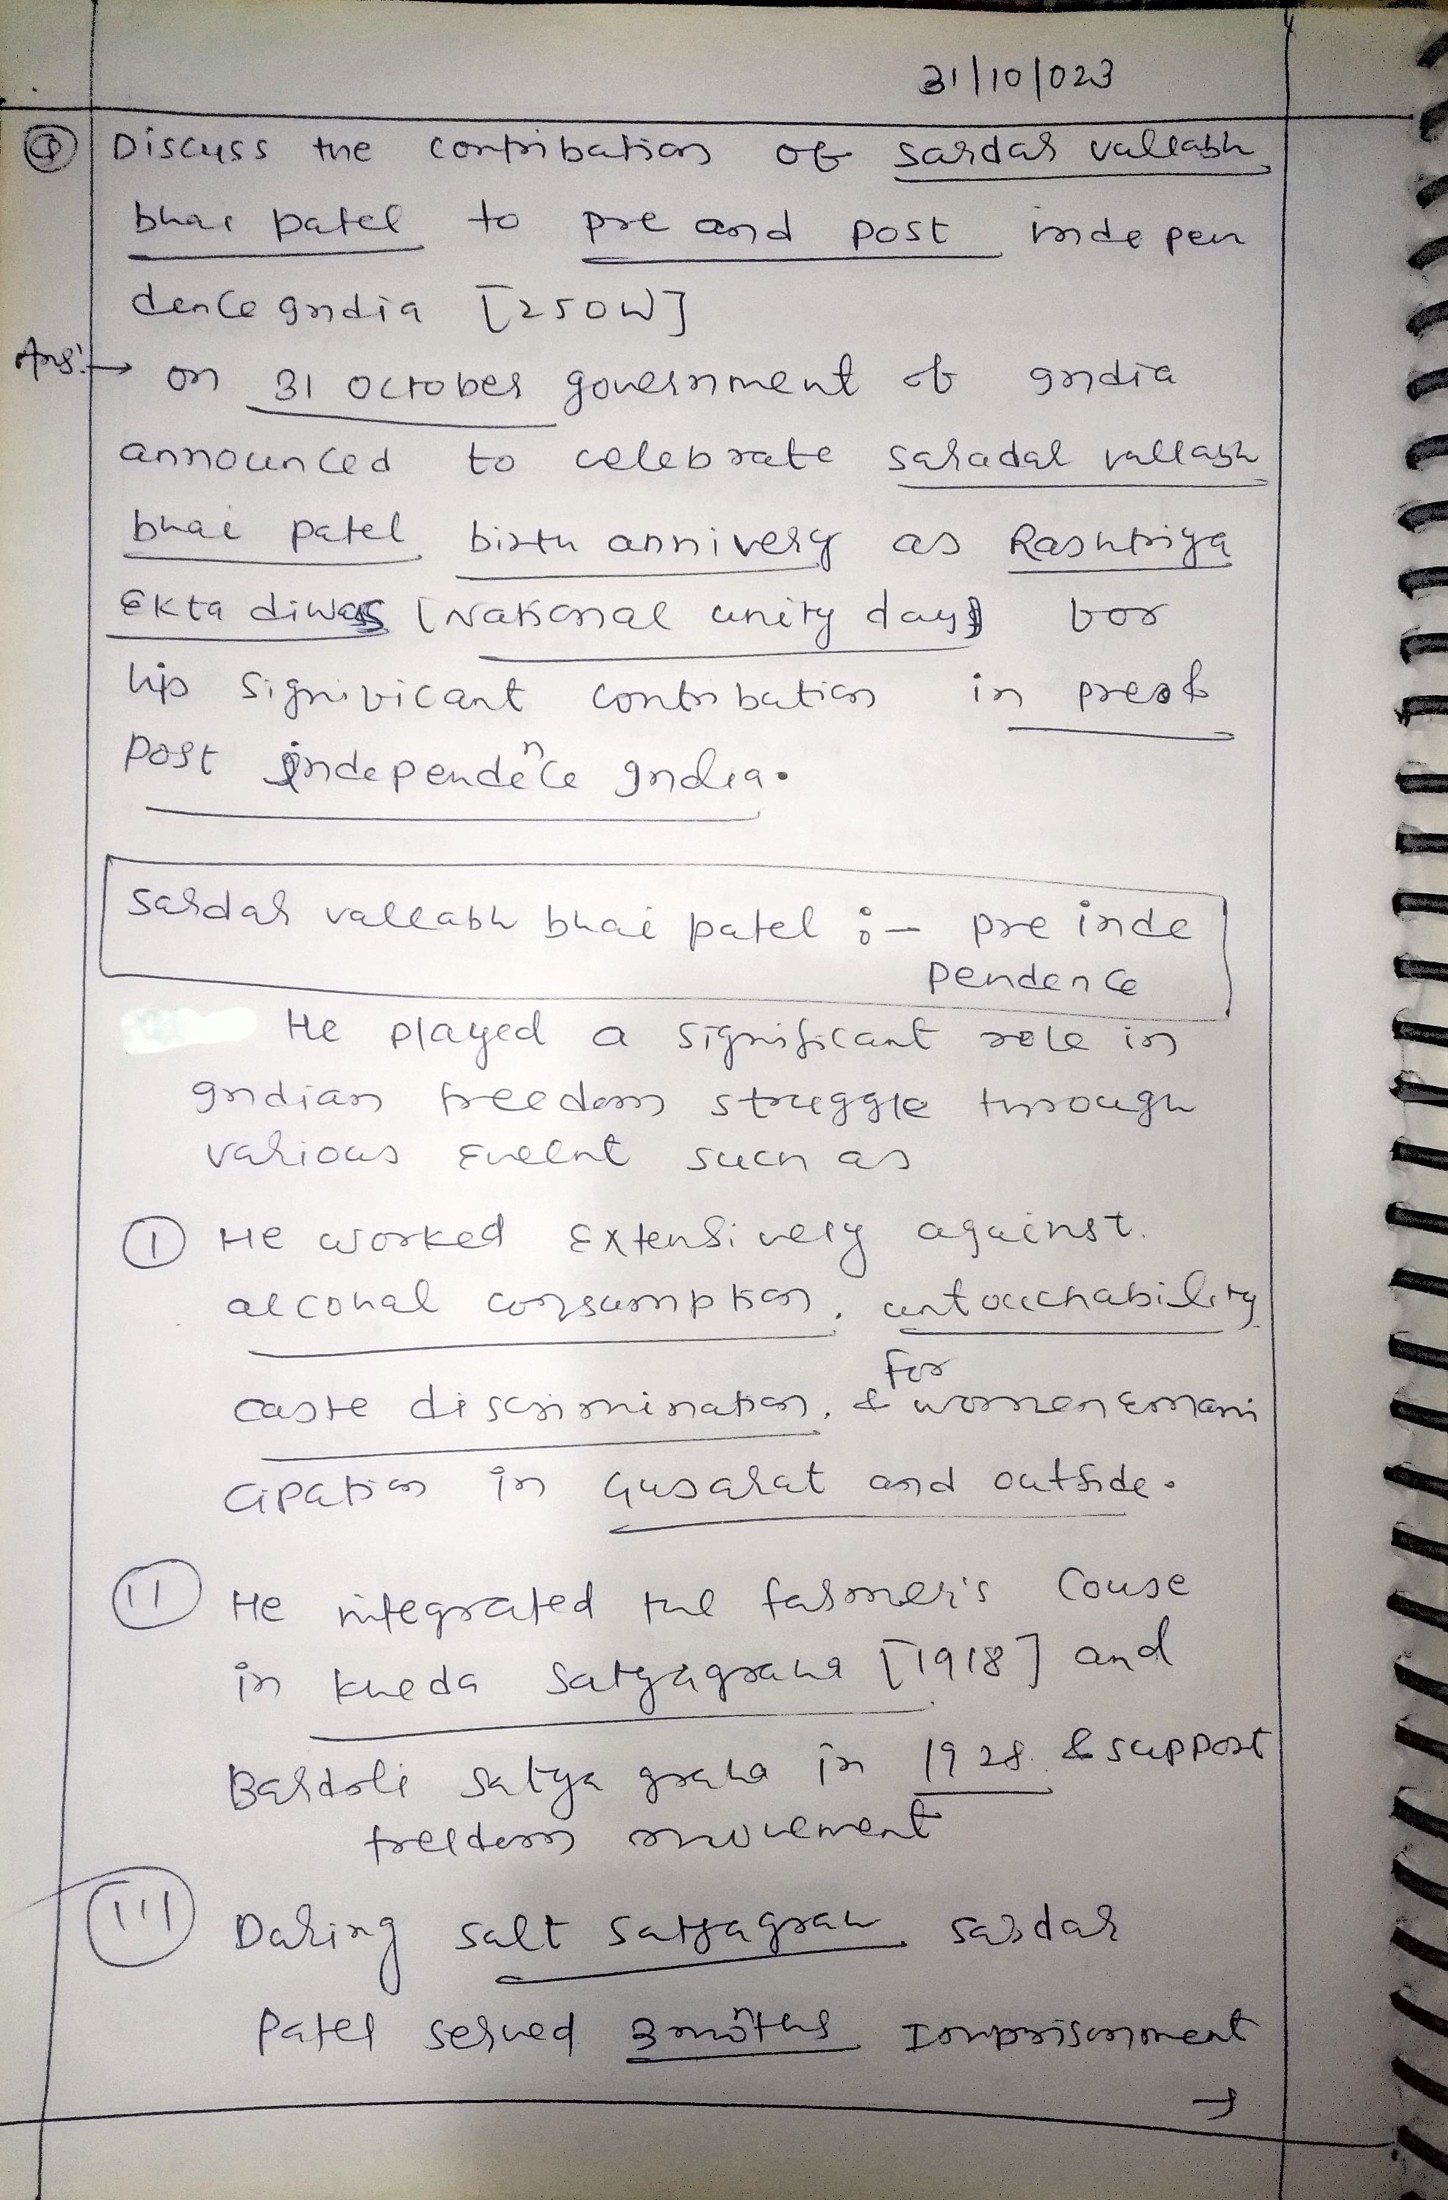 31/10/023
Q Discuss the contribution of sardar vallabh
bhai patel to pre and post indepen
dence India [250W]
Ans:→ on 31 october government of India
announced to celebrate saradar vallabh
bhai patel birth annivery as Rashtriya
Ekta diwas [National unity day] for
his significant contribution in pre &
post independence India.
Sardar vallabh bhai patel :- pre inde
pendence
He played a significant role in
Indian freedom struggle through
various Eveent such as
I He worked Extensively against
alcohal consumption, untouchability
caste discrimination, & for women Emani
cipation in Gujarat and outside.
II He integrated the farmer's couse
in kheda Satyagraha [1918] and
Bardoli satya graha in 1928 & support
freedom movement
III During salt satyagrah sardar
Patel served 3 months Imprisonment
→